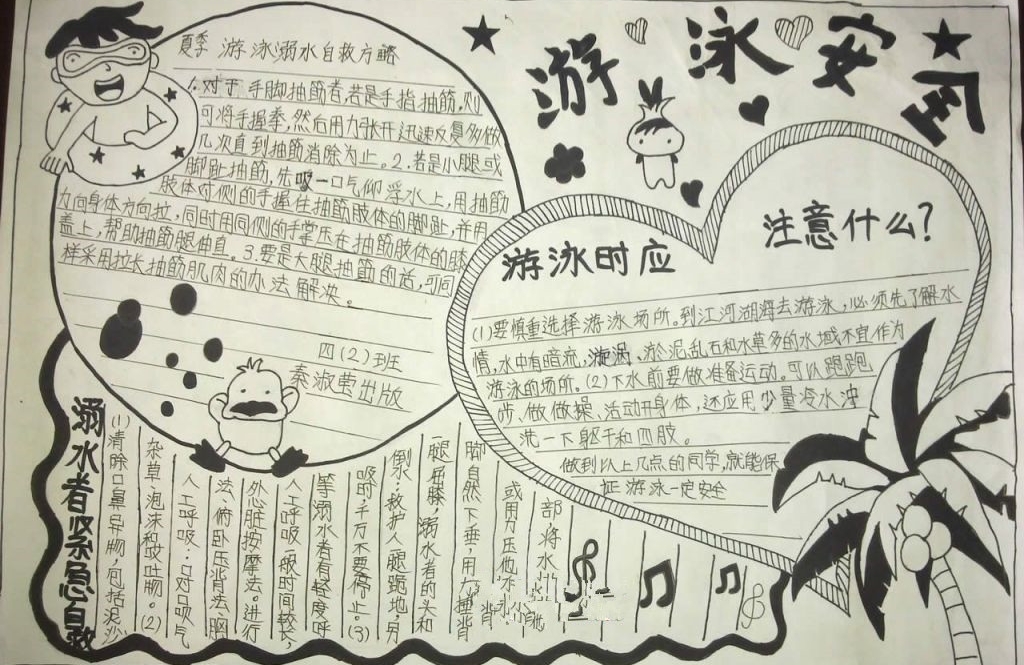 游泳安全
夏季游泳溺水自救方略
1.对于手脚抽筋者,若是手指抽筋,则
可将手握拳,然后用力张开,迅速反复多做
几次直到抽筋消除为止。2.若是小腿或
脚趾抽筋,先吸一口气仰浮水上,用抽筋
肢体对侧的手握住抽筋肢体的脚趾,并用
力向身体方向拉,同时用同侧的手掌压在抽筋肢体的膝
盖上,帮助抽筋腿伸直。3.要是大腿抽筋的话,可同
样采用拉长抽筋肌肉的办法解决。
四(2)班
秦淑萤出版
游泳时应
注意什么?
(1)要慎重选择游泳场所。到江河湖海去游泳,必须先了解水
情,水中有暗流,漩涡、淤泥、乱石和水草多的水域不宜作为
游泳的场所。(2)下水前要做准备运动。可以跑跑
步、做做操,活动开身体,还应用少量冷水冲
洗一下躯干和四肢。
做到以上几点的同学,就能保
证游泳一定安全
溺水者紧急自救
(1)清除口鼻异物,包括泥沙
杂草、泡沫和呕吐物。(2)
人工呼吸:口对口吹气
法、俯卧压背法、胸
外心脏按摩法。进行
人工呼吸一般时间较长,
等溺水者有轻度呼
吸时千万不要停止。(3)
倒水:救护人腿跪地,另
腿屈膝,溺水者的头和
脚自然下垂,用力撞背
或用力压他
部将水